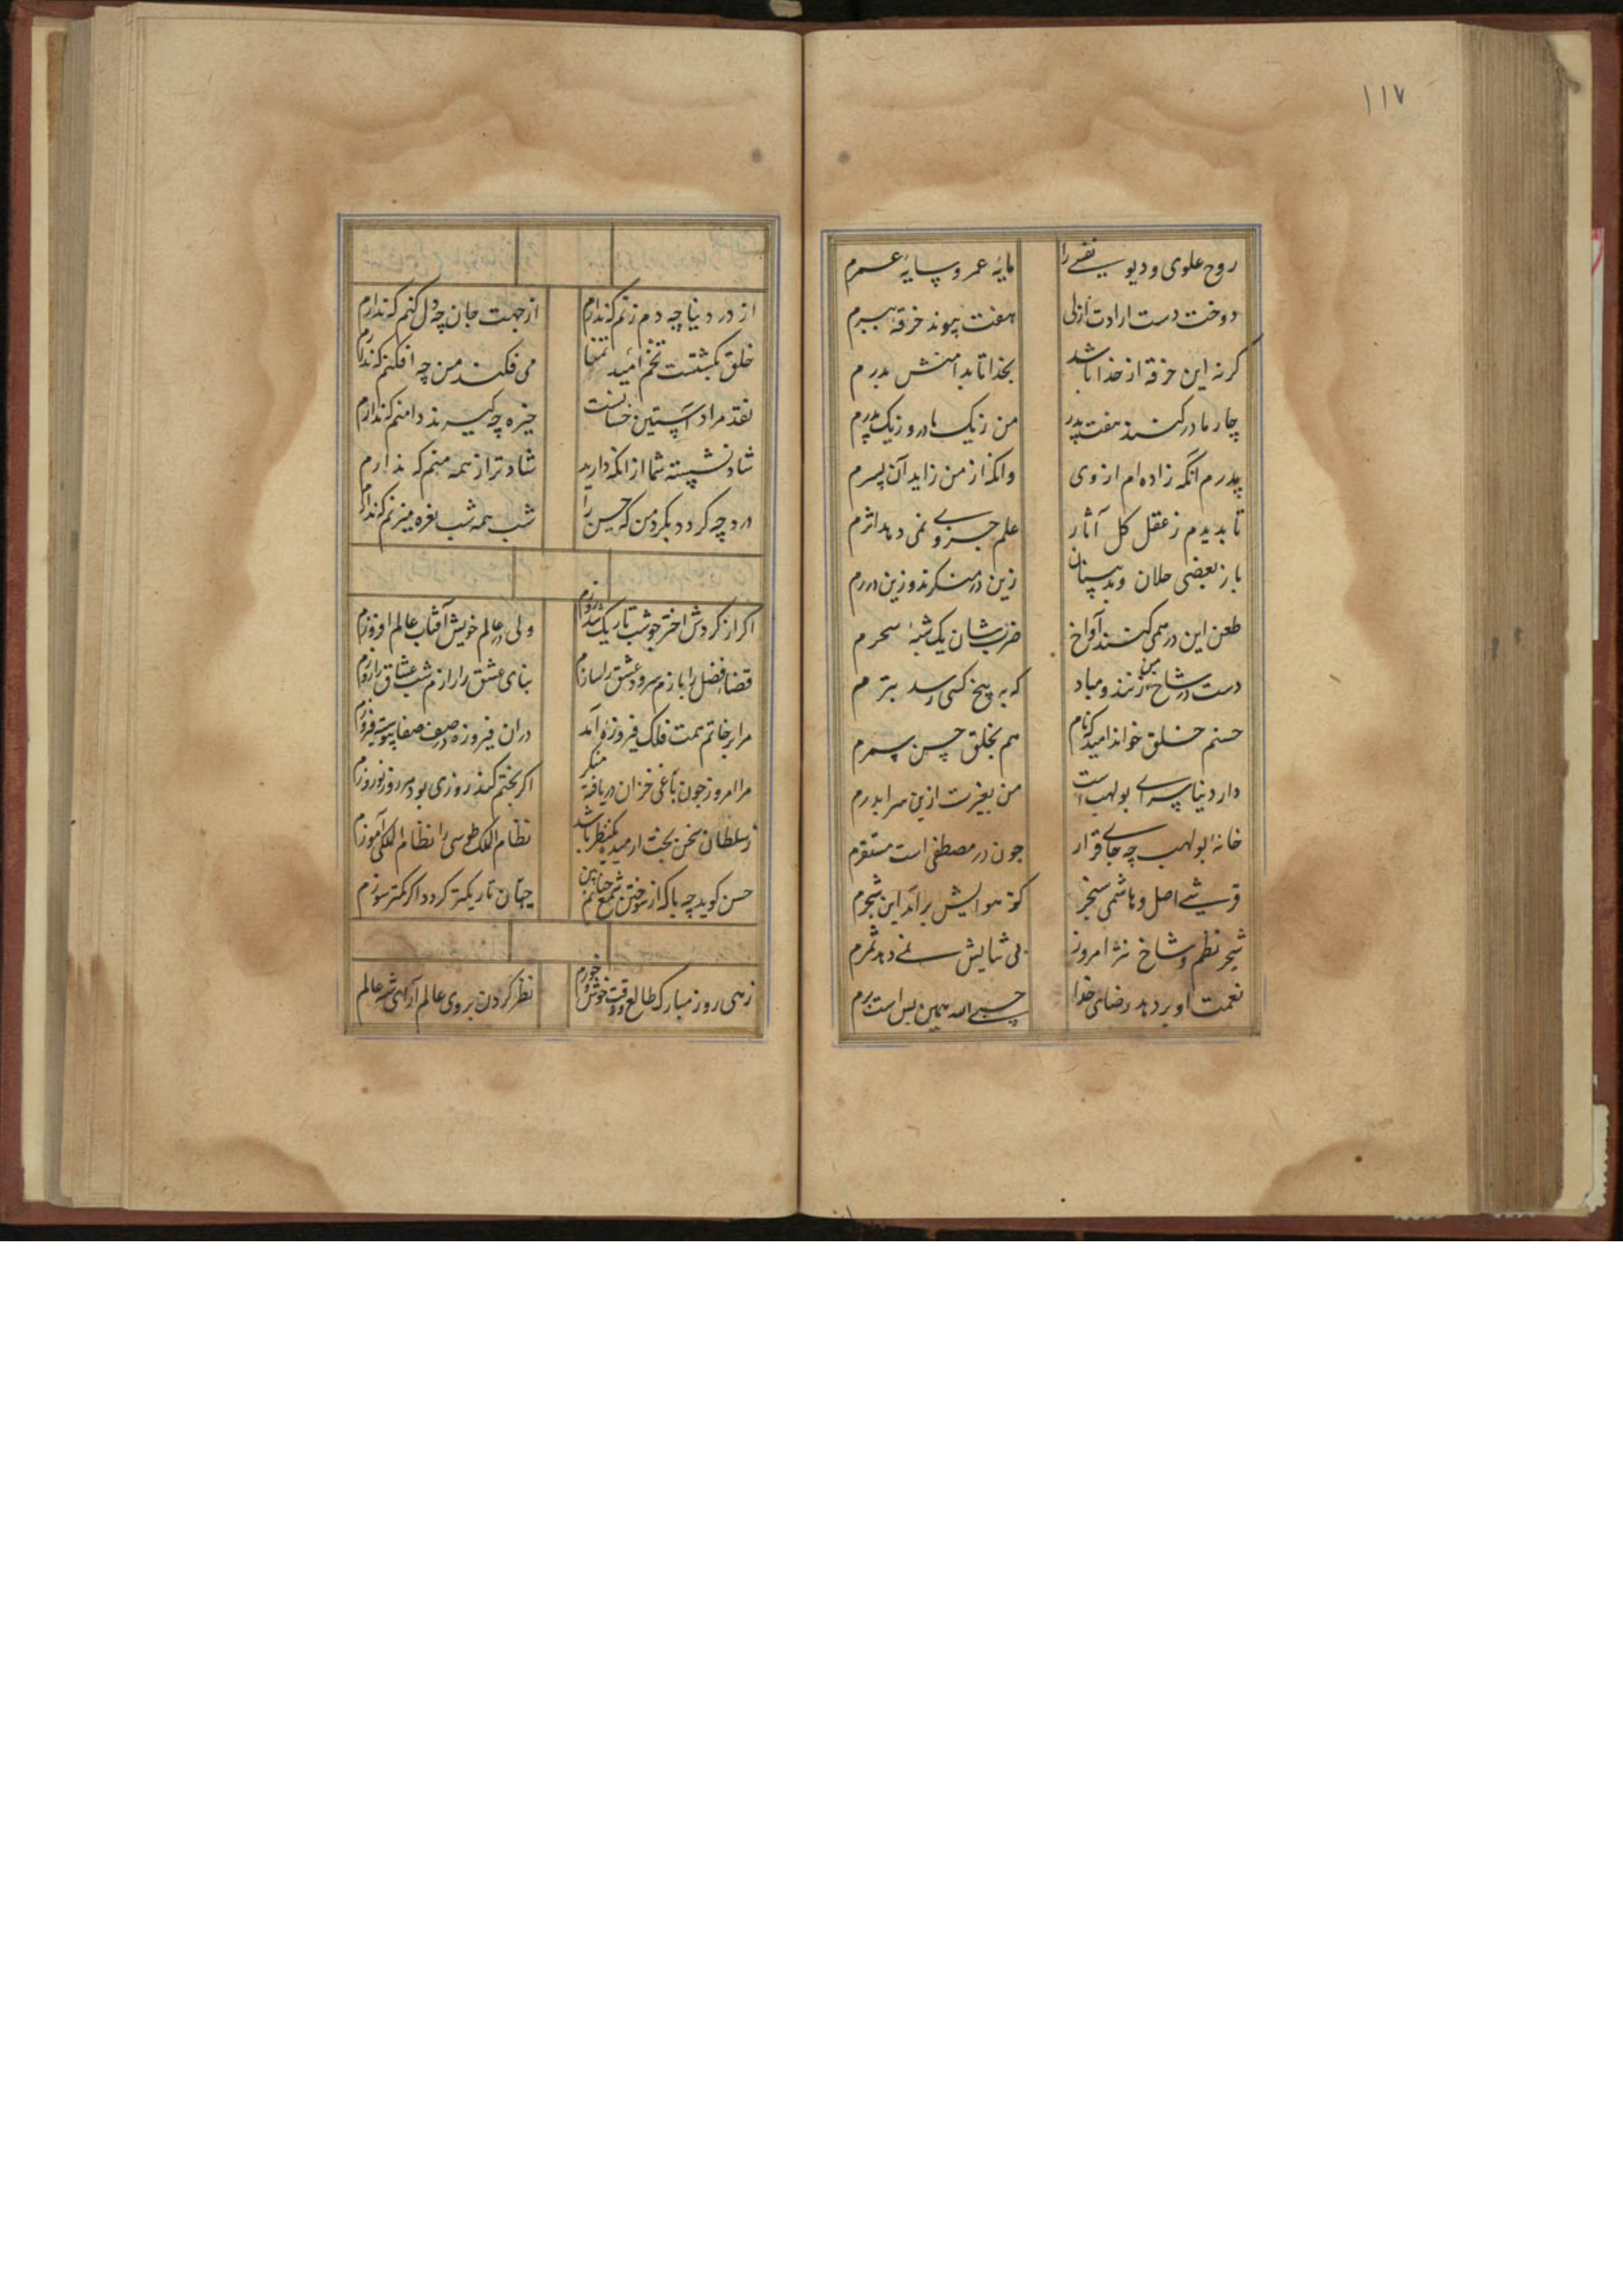 ۱۱۷
روح علوی و دیو نفسی را مایهٔ عمر و سایهٔ عمرم
دوخت دست ارادت ازلی هفت پیوند خرقهٔ بسرم
کر نه این خرقه از خدا باشد بخدا تا بدامنش بدرم
چار مادر کنند هفت پدر من ز یک مادر و ز یک پدرم
پدرم آنکه زاده‌ام از وی وانکه از من زاید آن پسرم
تا بدیدم ز عقل کل آثار علم جزوی نمی دهد اثرم
باز بعضی حلان و بدپسنان زین درم منکرند و زین دررم
طعن این در همی کنند آواخ ضربشان یک شبهٔ سحرم
دست در شاخ من زنند و مباد که به بیخ کسی رسد تبرم
حسنم خلق خواند امید کرنام هم بخلق حسن سمرم
دار دنیا سرای بولهب است من بغیرت ازین سرا بدرم
خانهٔ بولهب چه جای قرار جون در مصطفی است مستقرم
قرشی اصل و هاشمی سنجر کز هوایش برآمد این شجرم
شجر نظم و شاخ نثر امروز بی ثنایش نمی دهد ثمرم
نعمت او بر دهد رضای خدا حسبی الله همین بس است برم
از در دنیا چه دم زنم که ندارم از جهت جان چه دل کنم که ندارم
خلق بکشتست تخم امید تمنا می فکنند من چه افکنم که ندارم
نقد مراد آستین خسانست خیره چه کیرند دامنم که ندارم
شاد نشسته شما از انکه دارید شادتر از همه منم که ندارم
درد چه کردد بکرد من که حسن را شب همه شب نعره میزنم که ندارم
اکر از کردش اختر جو شب تاریک شد روزم ولی در عالم خویش آفتاب عالم افروزم
قضا فضل را بازم سرود عشق را سازم بنای عشق را رازم شب عشاق را روزم
مرا بر خاتم همت فلک فیروزه آمد دران فیروزه در صف صفا پیوسته فیروزم
مرا امروز جون باغی خزان دریافته منکر اکر بختم کند روزی بود هر روز نوروزم
ز سلطان سخن بخت ار مید یکنظر باشد نظام الملک طوسی را نظام الملکی آموزم
حسن کوید چه باک از سوختن شمع جهانم من جهان تاریکتر کردد اکر کمتر سوزم
زهی روز مبارک طالع و وقت خوش و خورم نظر کردن بروی عالم آرای شه عالم